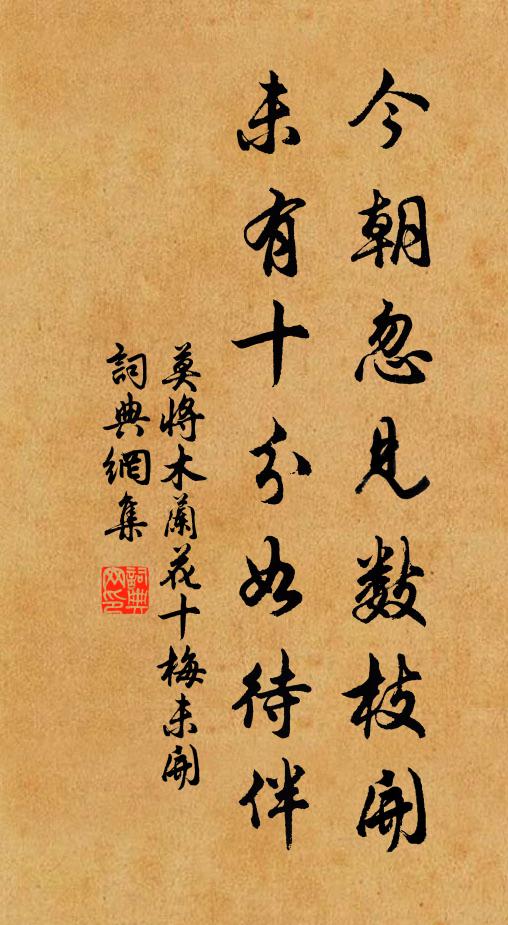 今朝忽見數枝開
未有十分如待伴
莫將木蘭花十梅未開
詞典網集
詞典网印